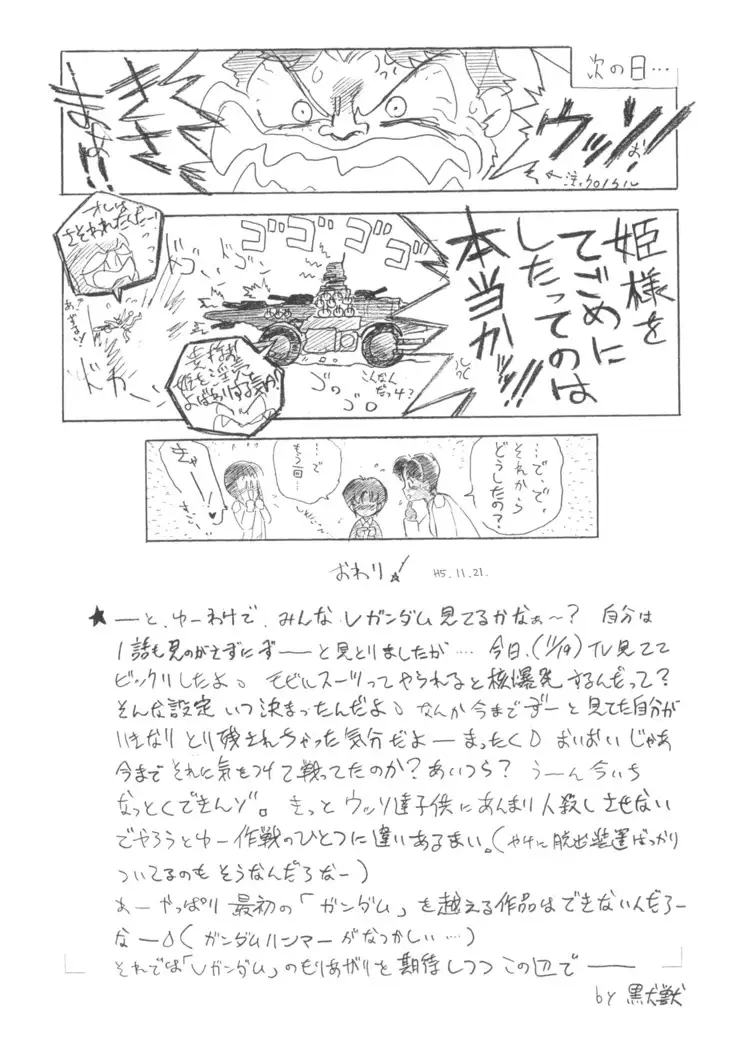 次の日…
ウッソ!!
きさまぁ!!
姫様を
てごめに
したってのは
本当かッ!!
ゴゴゴゴ
オレは
さそわれたんだー!
ドカ
ゴロゴロ
こんなん
だっけ?
…で、で、
それから
どうしたの?
…で
もう一回…
きゃー
おわり H5.11.21.
★ ーと、ゆーわけで、みんなVガンダム見てるかなぁ〜? 自分は
1話も見のがさずにずーーと見とりましたが…今日、(11/19) TV見てて
ビックリしたよ。モビルスーツってやられると核爆発するんだって?
そんな設定いつ決まったんだよ。なんか今までずーと見てた自分が
いきなりとり残されちゃった気分だよーまったく。おいおいじゃあ
今までそれに気をつけて戦ってたのか?あいつら? うーん今いち
なっとくできんゾ。きっとウッソ達子供にあんまり人殺しさせない
でやろうとゆー作戦のひとつに違いあるまい。(やけに脱出装置ばっかり
ついてるのもそうなんだろなー)
あーやっぱり最初の「ガンダム」を越える作品はできないんだろー
なー(ガンダムハンマーがなつかしい…)
それでは「Vガンダム」のもりあがりを期待しつつこの辺でーー
by 黒犬獣